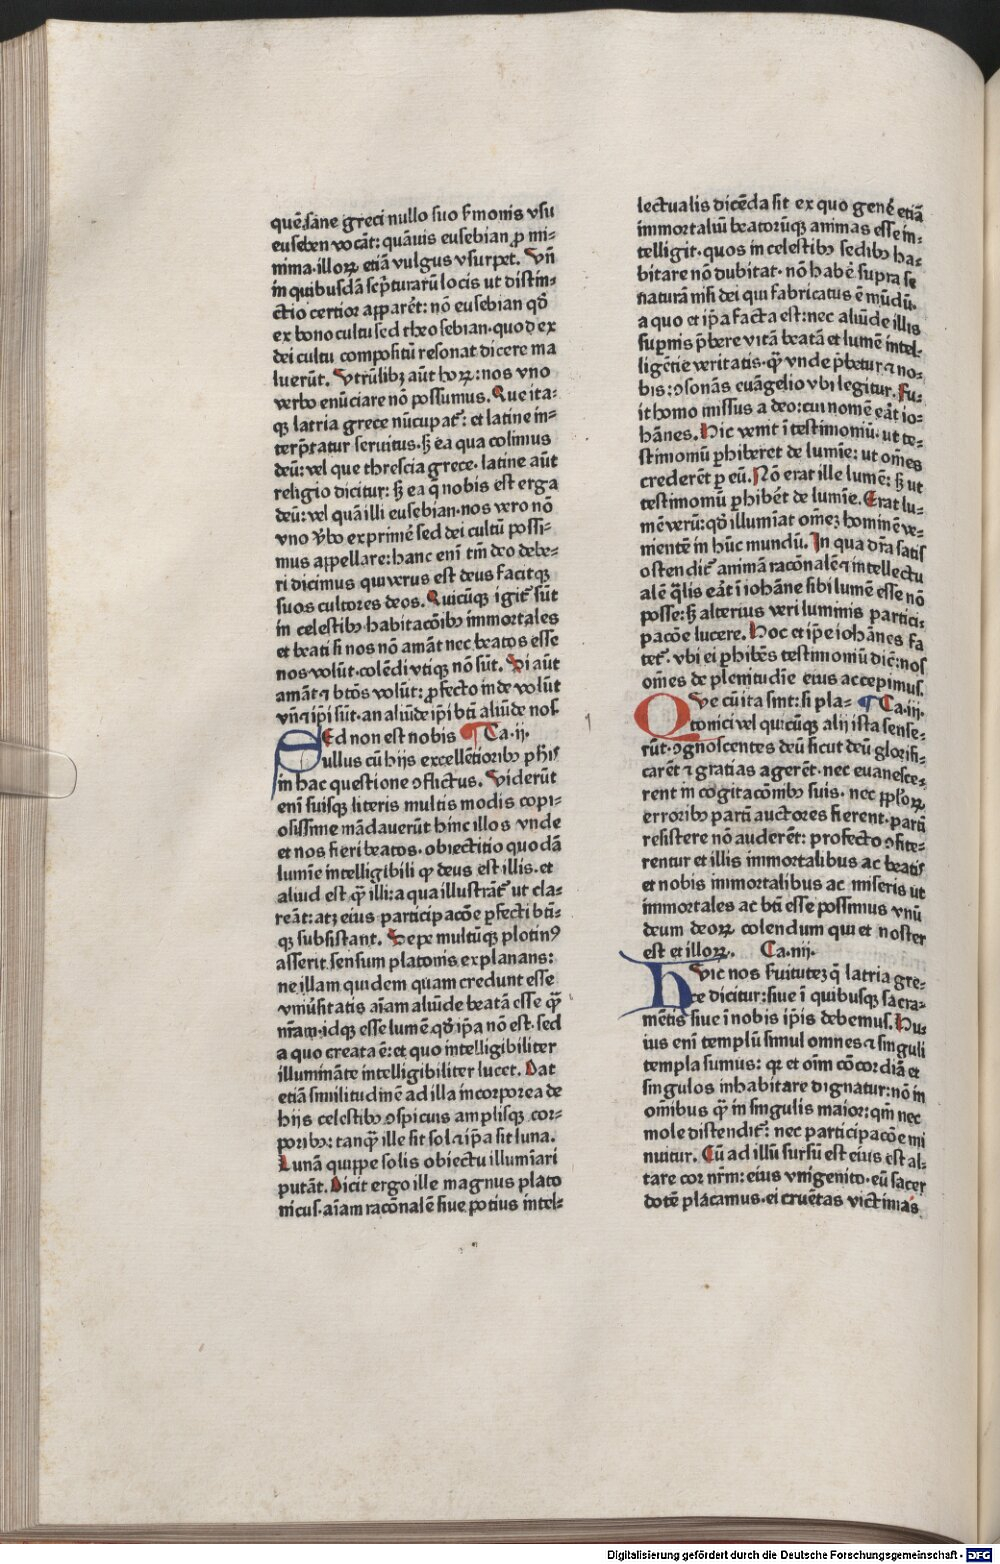 quē. sane greci nullo suo s̄monis vsu
euseben vocāt: quāuis eusebian ꝓ mi⸗
nima illoꝝ etiā vulgus vsurpet. Vn̄
in quibusdā sc̄pturarū locis ut distin⸗
ctio certior apparēt: nō eusebian qd̄
ex bono cultu sed theosebian. quod ex
dei cultu compositū resonat dicere ma
luerūt. Vtrūlibꝫ aūt hoꝝ: nos vno
verbo enūciare nō possumus. Que ita⸗
qꝫ latria grece nūcupat᷑: et latine in⸗
terp̄tatur seruitus. sꝫ ea qua colimus
deū: vel que threscia grece. latine aūt
religio dicitur: sꝫ ea q̄ nobis est erga
deū: vel quā illi eusebian. nos vero nō
vno v̄bo exprimē sed dei cultū possi⸗
mus appellare: hanc eni tm̄ deo debe⸗
ri dicimus qui verus est deus facitqꝫ
suos cultores deos. Quicūqꝫ igit᷑ sūt
in celestibꝰ habitacōibꝰ immortales
et beati si nos nō amāt nec beatos esse
nos volūt. colēdi vtiqꝫ nō sūt. Si aūt
amāt ⁊ btōs volūt: ꝓfecto inde volūt
vn̄ ⁊ ip̄i sūt. an aliūde ip̄i bt̄i aliūde nos.
SEd non est nobis ¶ Ca. ij.
ullus cū hijs excellētioribꝰ phis
in hac questione ꝯflictus. Viderūt
eni suisqꝫ literis multis modis copi⸗
osissime mādauerūt hinc illos vnde
et nos fieri beatos. obiectitio quodā
lumīe intelligibili qꝫ deus est illis. et
aliud est qͣꝫ illi: a qua illustrāt᷑ ut cla⸗
reāt: atꝫ eius participacōe ꝑfecti bti⸗
qꝫ subsistant. Sepe multūqꝫ plotinꝰ
asserit. sensum platonis explanans:
ne illam quidem quam credunt esse
vniūsitatis aīam aliūde beatā esse qͣꝫ
nr̄am. idqꝫ esse lumē qd̄ ip̄a nō est. sed
a quo creata ē: et quo intelligibiliter
illumināte intelligibiliter lucet. Dat
etiā similitudinē ad illa incorporea de
hijs celestibꝰ ꝯspicuis amplisqꝫ cor⸗
poribꝰ: tanqͣꝫ ille sit sol ⁊ ip̄a sit luna.
Lunā quippe solis obiectu illumīari
putāt. Dicit ergo ille magnus plato
nicus. aīam racōnalē siue potius intel⸗
lectualis dicēda sit ex quo genē etiā
immortaliū beatorūqꝫ animas esse in⸗
telligit. quos in celestibꝰ sedibꝰ ha⸗
bitare nō dubitat. nō habē supra se
naturā nisi dei qui fabricatus ē mūdū.
a quo et ip̄a facta est: nec aliūde illis
suꝑnis p̄bere vitā beatā et lumē intel⸗
ligētie veritatis. qͣꝫ vnde p̄betur ⁊ no⸗
bis: ꝯsonās euāgelio vbi legitur. Fu⸗
it homo missus a deo: cui nomē eāt io⸗
hānes. Hic venit ī testimoniū. ut te⸗
stimoniū ꝑhiberet de lumīe: ut om̄es
crederēt ꝑ eū. Nō erat ille lumē: sꝫ ut
testimoniū ꝑhibēt de lumīe. Erat lu⸗
mē verū: qd̄ illumīat omēꝫ hominē ve⸗
nientē in hūc mundū. In qua dr̄a satis
ostendit᷑ animā racōnalē ⁊ intellectu
alē q̄lis eāt ī iohāne sibi lumē esse nō
posse: sꝫ alterius veri luminis partici⸗
pacōe lucere. Hoc et ip̄e iohānes fa
tet᷑. vbi ei ꝑhibēs testimoniū dic̄: nos
om̄es de plenitudīe eius accepimus.
QVe cū ita sint: si pla⸗ ¶ Ca. iij.
tonici vel quicūqꝫ alij ista sense⸗
rūt. ꝯgnoscentes deū sicut deū glorifi⸗
carēt ⁊ gratias agerēt. nec euanesce⸗
rent in cogitacōnibꝰ suis. nec ꝓploꝝ
erroribꝰ partī auctores fierent. partī
resistere nō auderēt: profecto ꝯfite⸗
rentur et illis immortalibus ac beatis
et nobis immortalibus ac miseris ut
immortales ac bti esse possimus vnū
deum deoꝝ colendum qui et noster
est et illoꝝ. Ca. iiij.
HVic nos s̄uitutēꝫ q̄ latria gre⸗
ce dicitur: siue ī quibusqꝫ sacra⸗
mētis siue ī nobis ip̄is debemus. Hu⸗
ius eni templū simul omnes ⁊ singuli
templa sumus: qꝛ et oīm cōcordiā et
singulos inhabitare dignatur: nō in
omibus qͣꝫ in singulis maior: qm̄ nec
mole distendit᷑: nec participacōe mi
nuitur. Cū ad illū sursū est eius est al⸗
tare cor nr̄m: eius vnigenito. eū sacer
dotē placamus. ei cruētas victimas
Digitalisierung gefördert durch die Deutsche Forschungsgemeinschaft - DFG